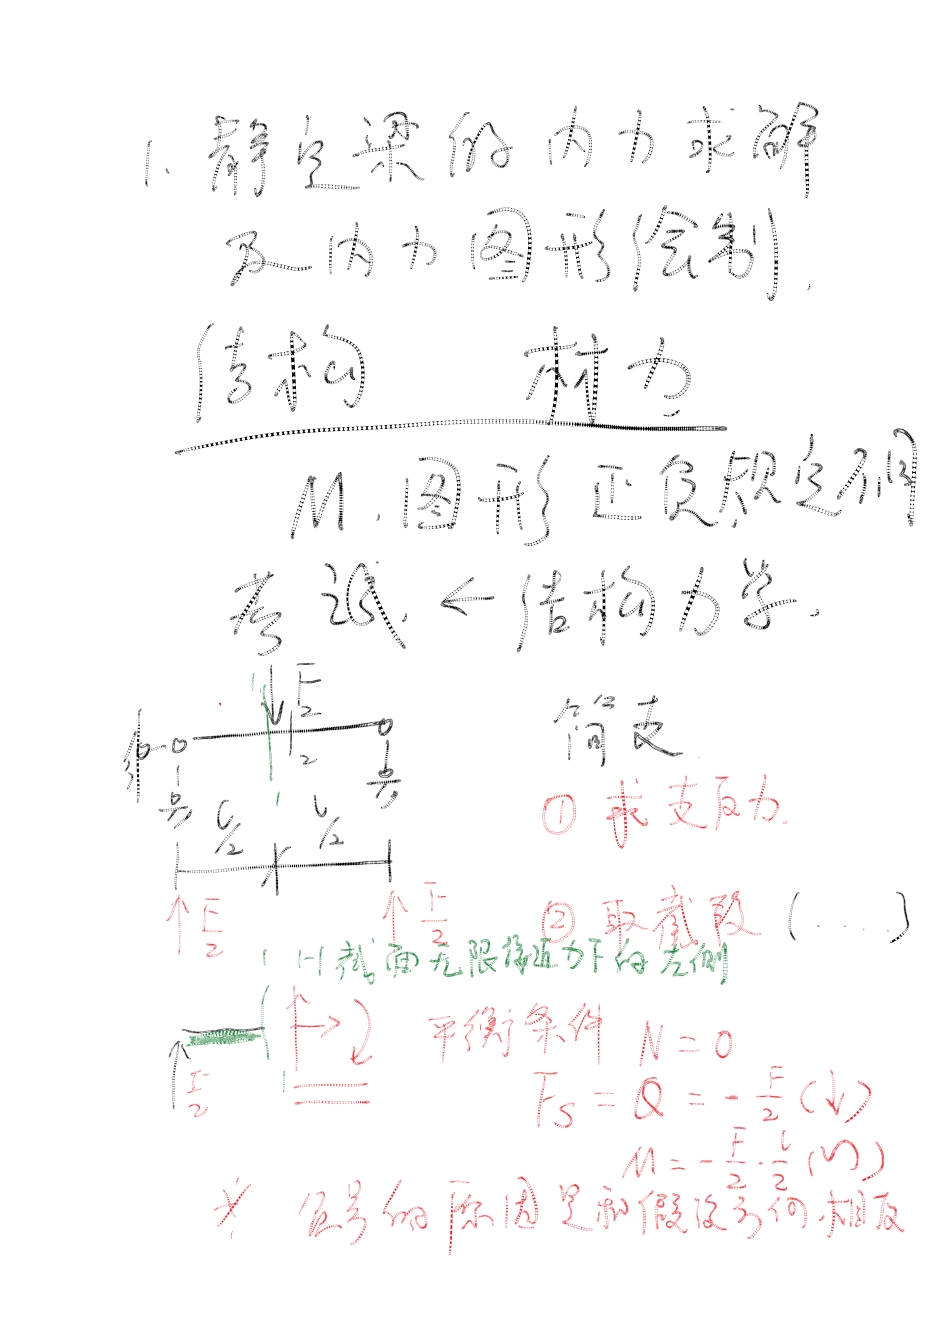 1. 静定梁的内力求解
及内力图形绘制.
结构 材力
M.图形正负规定不同
考试. ← 结构力学.
F
2
2
简支
① 求支反力.
L/2 L/2
F/2 F/2
② 取截段 (.....)
1 1-1截面无限接近力F的左侧
平衡条件 N = 0
F/2
1
Fs = Q = - F/2 (↓)
M = - F/2 · L/2 ( )
* 负号的原因是和假设方向相反